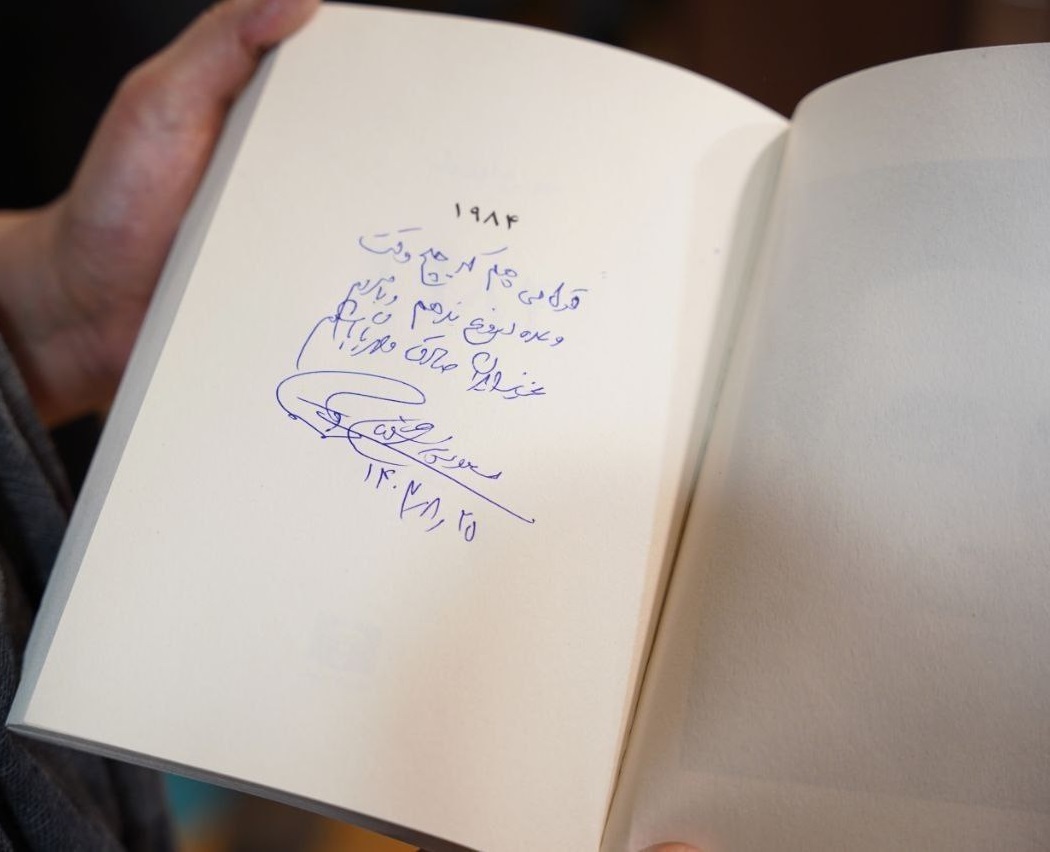 ۱۹۸۴
قول می‌دهم که هیچ وقت
وعده دروغ ندهم و با مردم
صادق و مهربان باشم
مسعود پزشکیان
۱۴۰۳٫۸٫۲۵